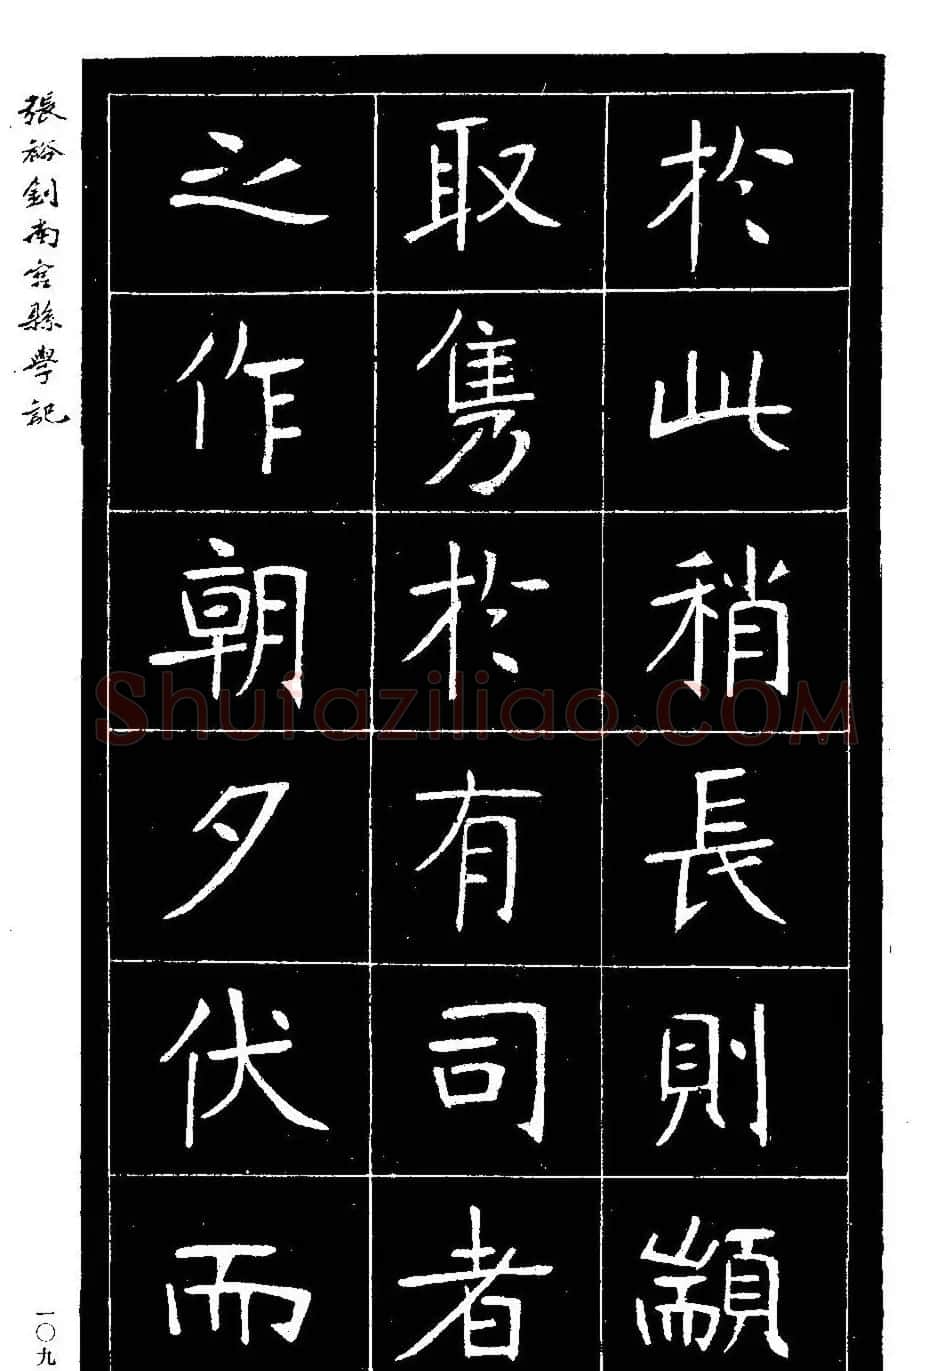 於此稍長則顓
取雋於有司者
之作朝夕伏而
張裕釗南宮縣學記
一〇九
Shufaziliao.COM